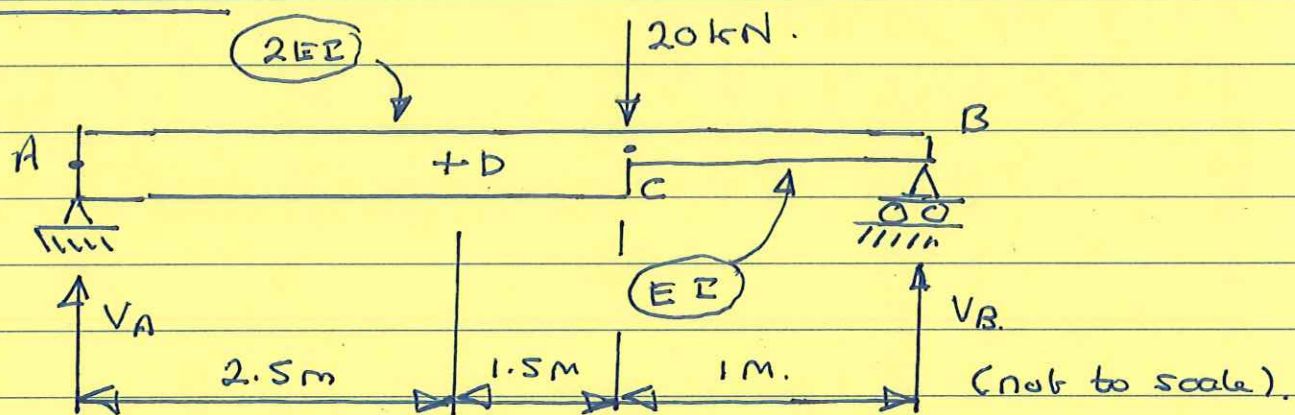 2EI
20 kN.
A
B
+D
C
EI
VA
VB.
2.5m
1.5m
1m.
(not to scale).